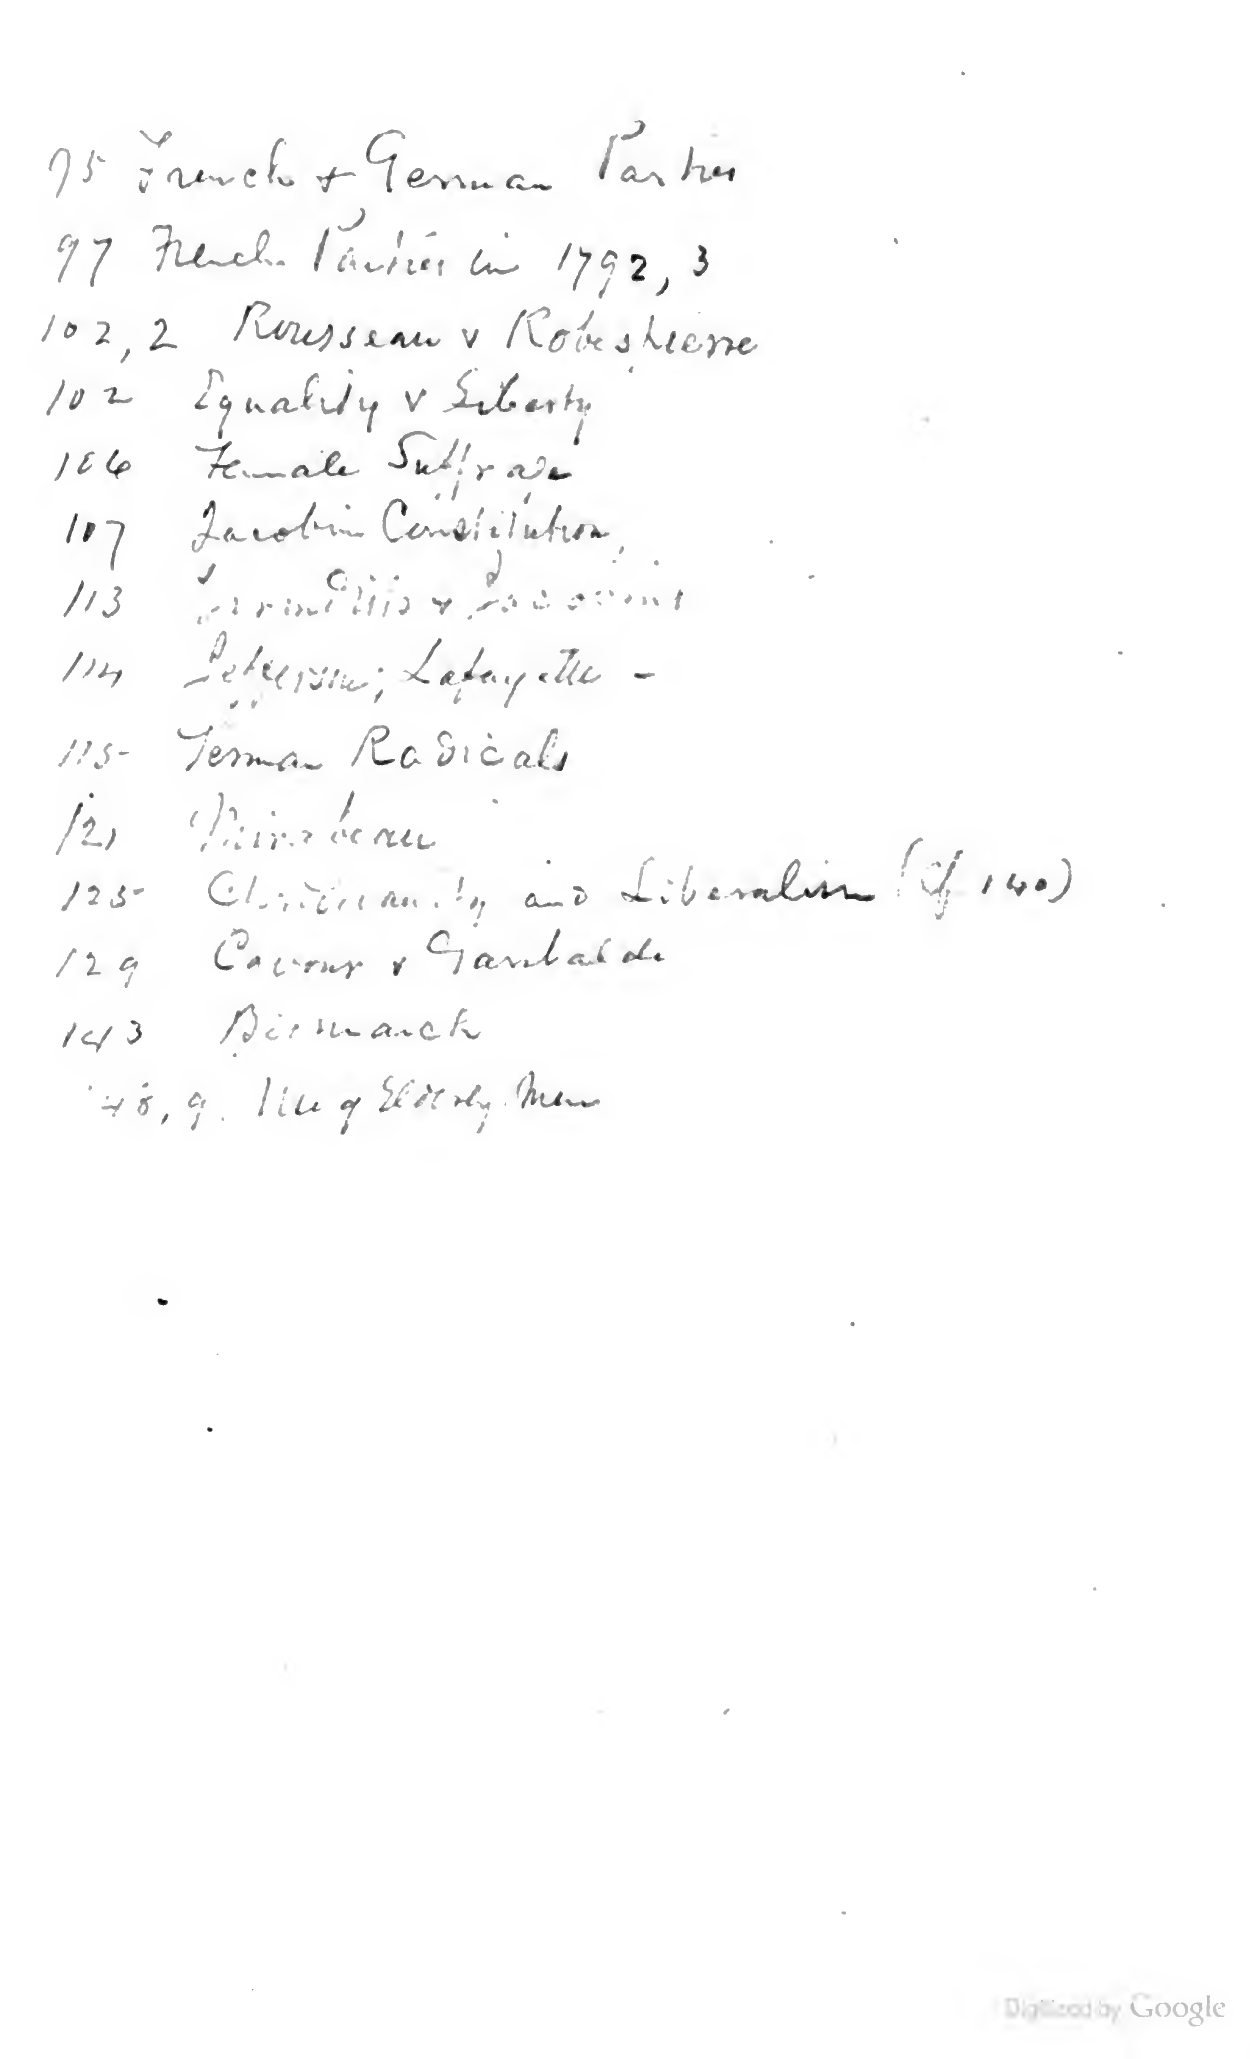 95 French + German Parties
97 French Parties in 1792, 3
102, 2 Rousseau v Robespierre
102 Equality v Liberty
106 Female Suffrage
107 Jacobin Constitution
113 Girondists v Jacobins
114 Jefferson; Lafayette -
115 German Radicals
121 Mirabeau
125 Christianity and Liberalism (cf 140)
129 Cavour v Garibaldi
143 Bismarck
148, 9. of Elderly Men
Digitized by Google